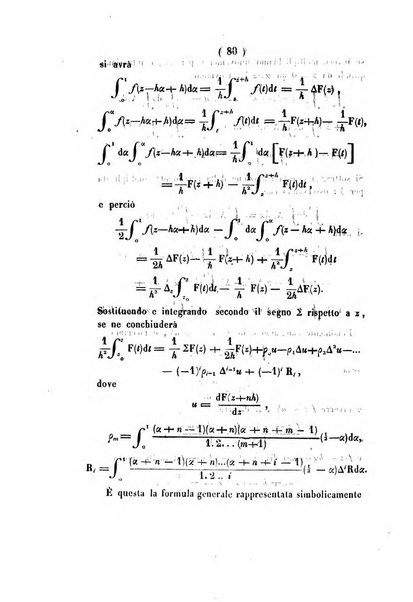 ( 80 )
si avrà
∫₀¹ f(z—hα+h)dα = 1/h ∫_z^{z+h} f(t)dt = 1/h ΔF(z) ,
∫₀^α f(z—hα+h)dα = 1/h ∫_{z+h-hα}^{z+h} f(t)dt = 1/h F(z+h) — 1/h F(t),
∫₀¹ dα ∫₀^α f(z—hα+h)dα = 1/h ∫₀¹ dα [F(z+h) — F(t)]
= 1/h F(z+h) — 1/h² ∫_z^{z+h} F(t)dt ,
e perciò
1/2 ∫₀¹ f(z—hα+h)dα — ∫₀¹ dα ∫₀^α f(z—hα+h)dα
= 1/2h ΔF(z) — 1/h F(z+h) + 1/h² ∫_z^{z+h} F(t)dt
= 1/h² Δ_z ∫_{z₀}^z F(t)dt — 1/h F(z) — 1/2h ΔF(z).
Sostituendo e integrando secondo il segno Σ rispetto a z ,
se ne conchiuderà
1/h ∫_{z₀}^z F(t)dt = ΣF(z) + 1/2 F(z)+ρ₀u—ρ₁Δu+ρ₂Δ²u—...
— (—1)^i ρ_{i—1} Δ^{i—1}u + (—1)^i R_i ,
dove
u = dF(z+nh)/dz ,
ρ_m = ∫₀¹ (α + n — 1)(α + n)(α + n + m — 1)/1. 2. . . (m+1) (½—α)dα,
R_i = ∫₀¹ (α + n — 1)(α + n)...(α + n + i — 1)/1. 2 . . i (½ — α)Δ^i Rdα.
È questa la formula generale rappresentata simbolicamente